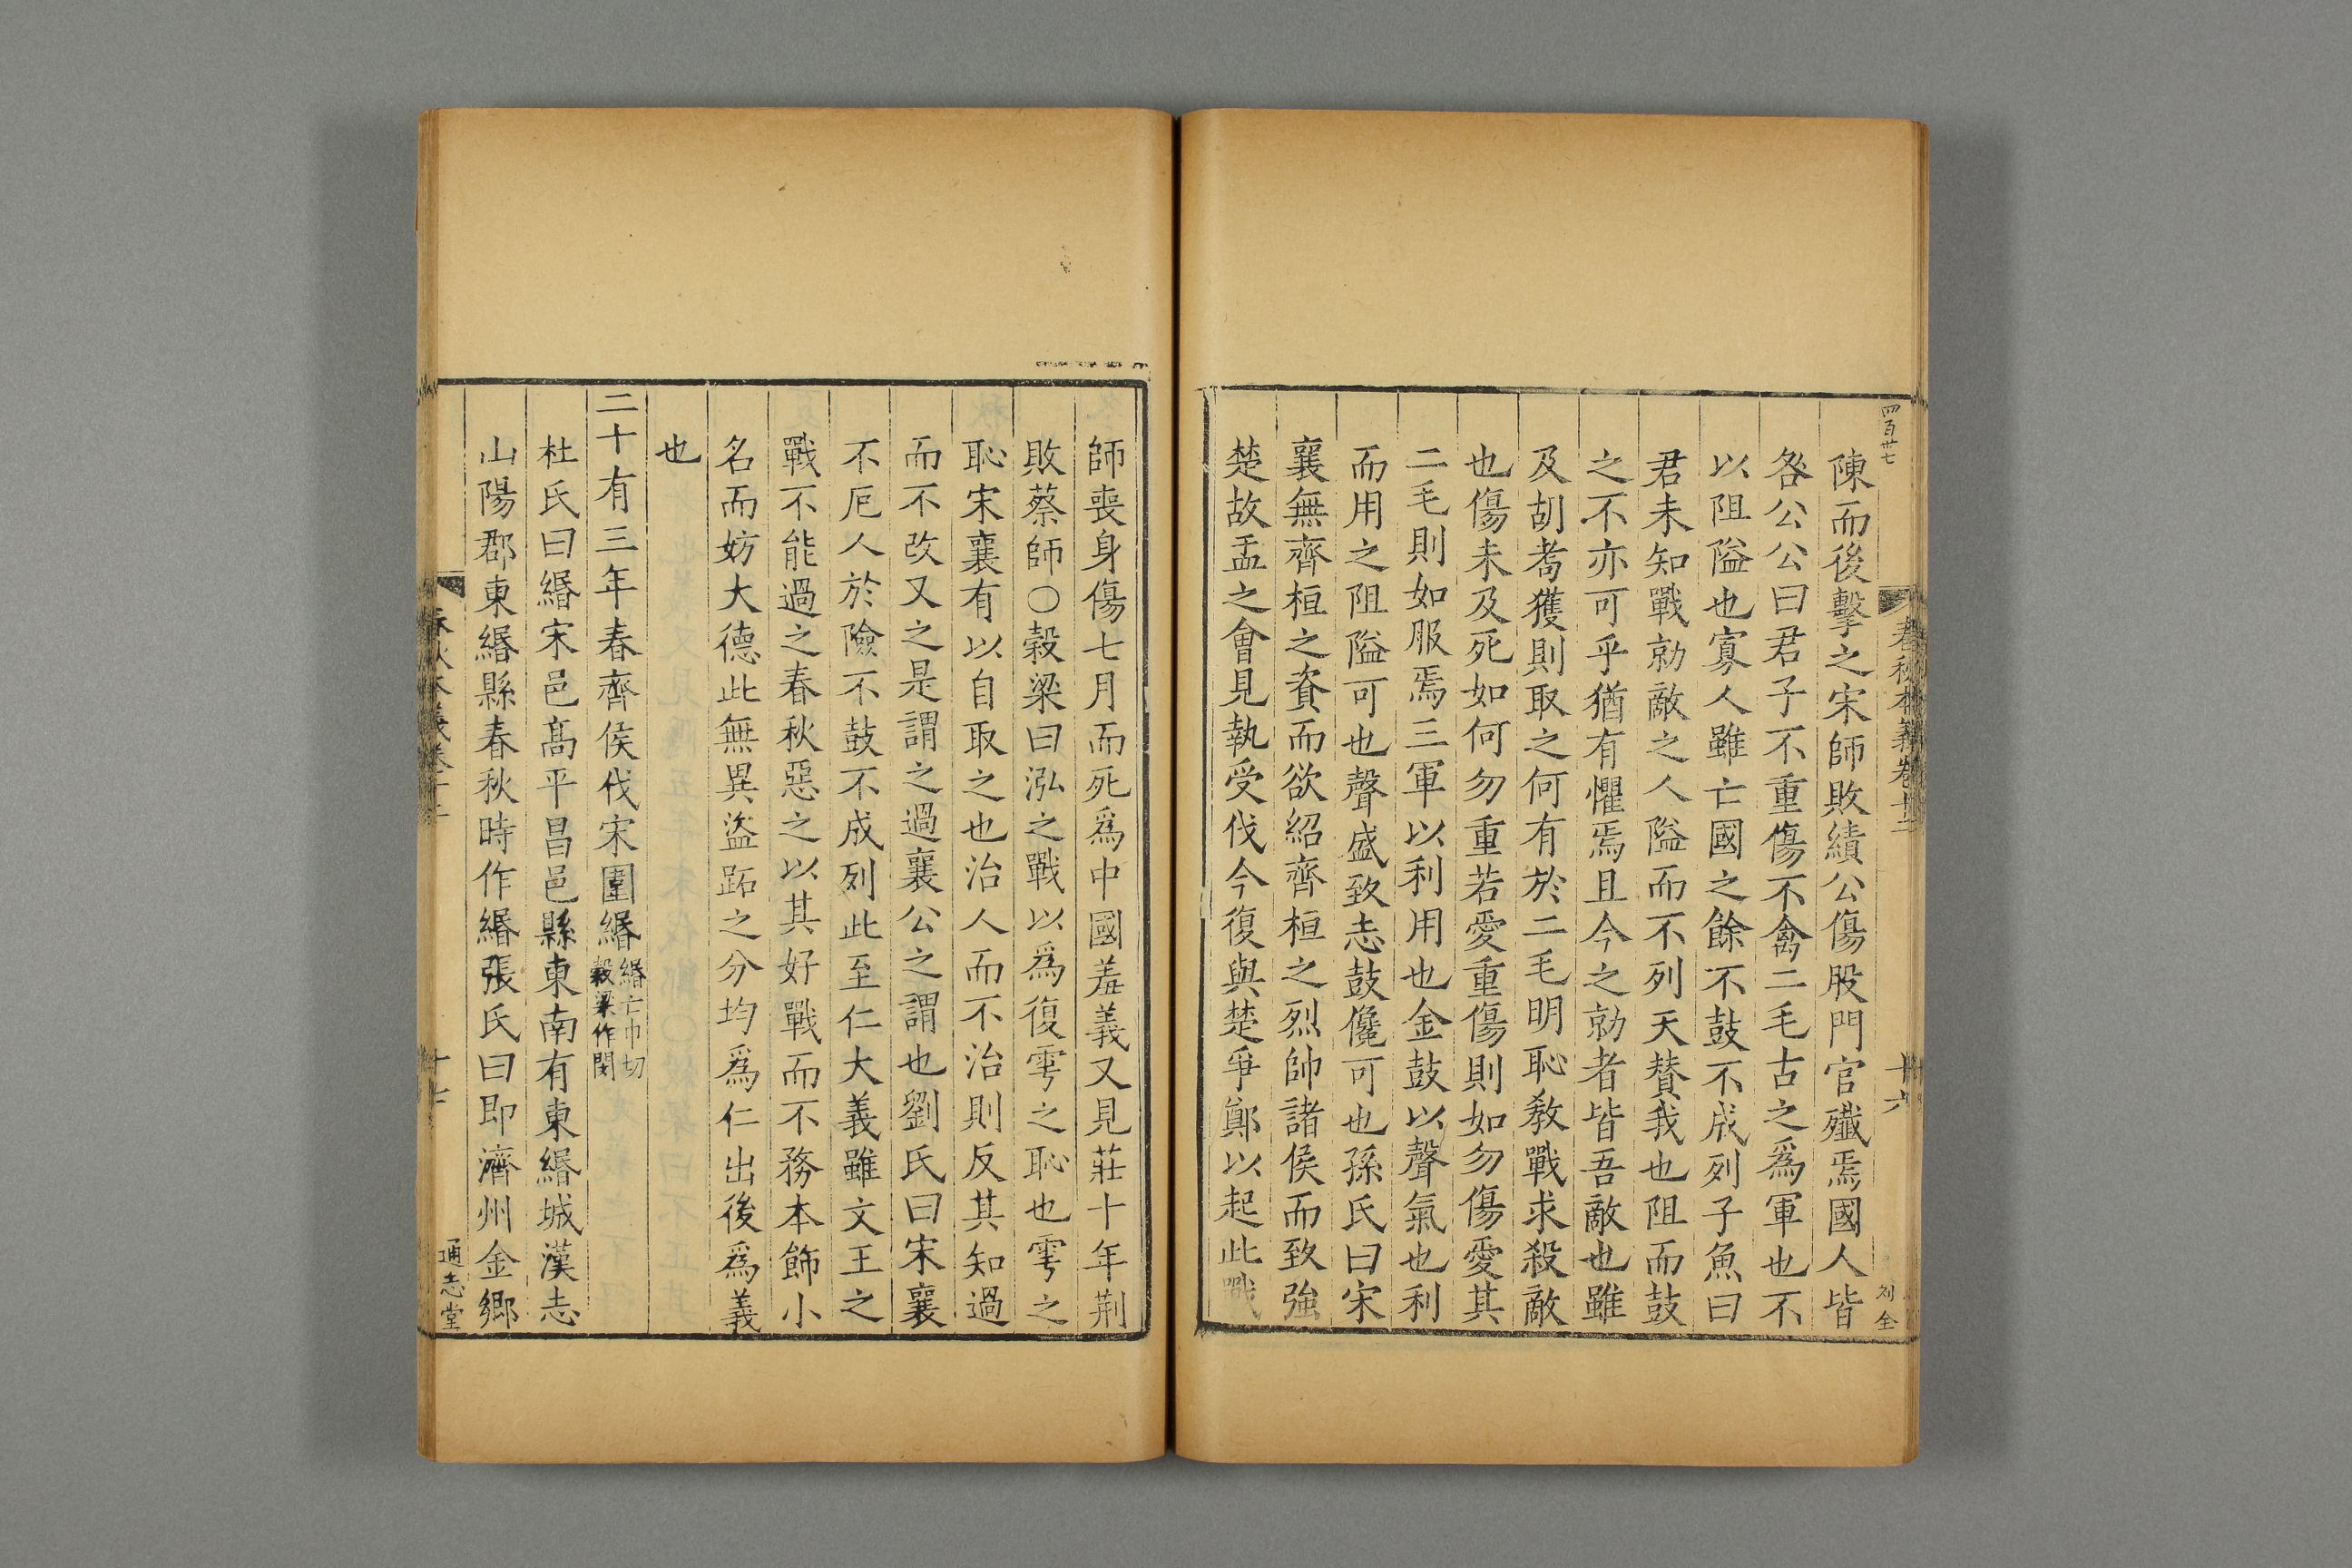 四百卅七
春秋本義卷十二
十六
刘全
陳而後擊之宋師敗績公傷股門官殲焉國人皆
咎公公曰君子不重傷不禽二毛古之爲軍也不
以阻隘也寡人雖亡國之餘不鼓不成列子魚曰
君未知戰勍敵之人隘而不列天贊我也阻而鼓
之不亦可乎猶有懼焉且今之勍者皆吾敵也雖
及胡耇獲則取之何有於二毛明恥教戰求殺敵
也傷未及死如何勿重若愛重傷則如勿傷愛其
二毛則如服焉三軍以利用也金鼓以聲氣也利
而用之阻隘可也聲盛致志鼓儳可也孫氏曰宋
襄無齊桓之資而欲紹齊桓之烈帥諸侯而致強
楚故盂之會見執受伐今復與楚爭鄭以起此戰
師喪身傷七月而死爲中國羞義又見莊十年荆
敗蔡師○穀梁曰泓之戰以爲復雩之恥也雩之
恥宋襄有以自取之也治人而不治則反其知過
而不改又之是謂之過襄公之謂也劉氏曰宋襄
不厄人於險不鼓不成列此至仁大義雖文王之
戰不能過之春秋惡之以其好戰而不務本飾小
名而妨大德此無異盜跖之分均爲仁出後爲義
也
二十有三年春齊侯伐宋圍緡緡亡巾切穀梁作閔
杜氏曰緡宋邑高平昌邑縣東南有東緡城漢志
山陽郡東緡縣春秋時作緡張氏曰即濟州金鄉
十七
通志堂